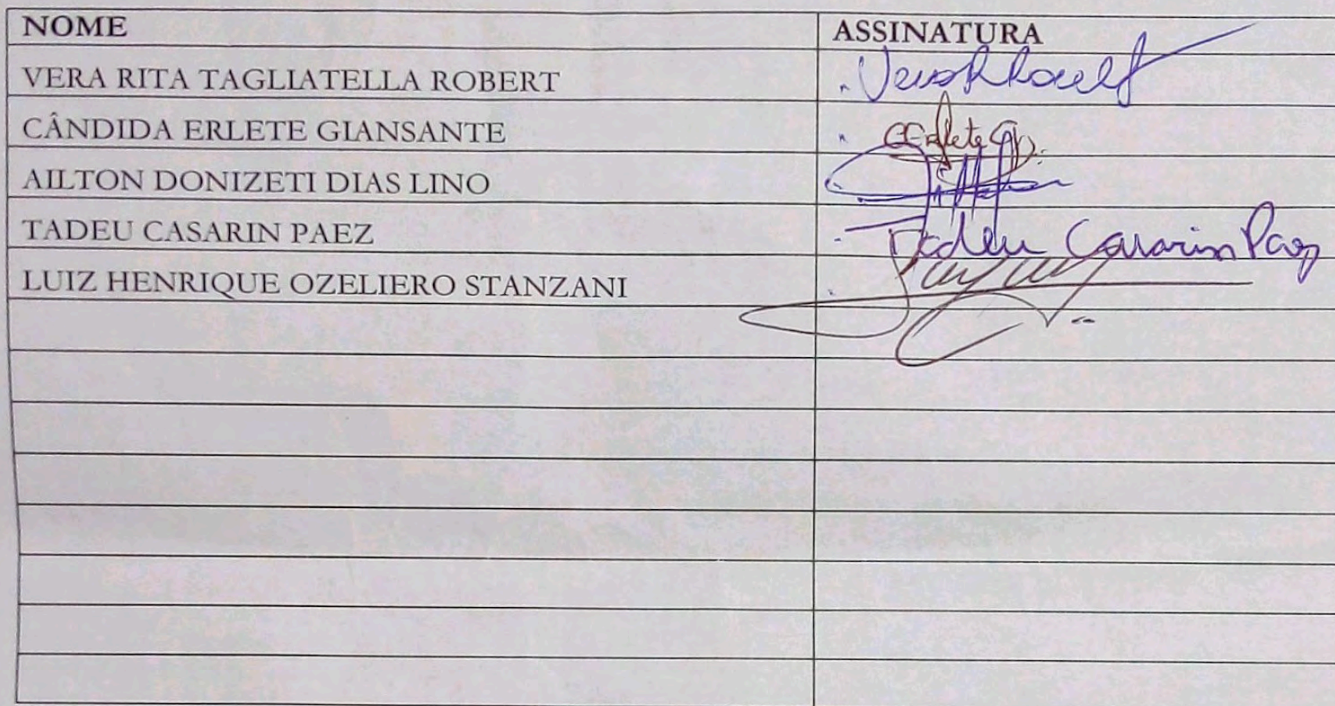 NOME ASSINATURA
VERA RITA TAGLIATELLA ROBERT
CÂNDIDA ERLETE GIANSANTE
AILTON DONIZETI DIAS LINO
TADEU CASARIN PAEZ Tadeu Casarin Paez
LUIZ HENRIQUE OZELIERO STANZANI